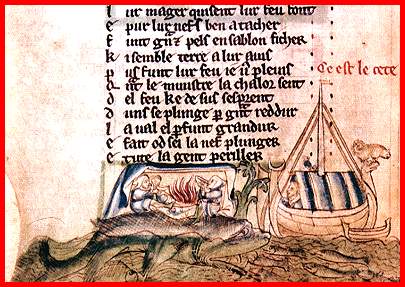 l ur mager quisent lur feu font
e pur lur nefs ben atacher
f unt gñz pels en sablon ficher
k i semble terre a lur auis
p us funt lur feu ie
Ce est le cete
q nt le munstre la chalor sent
d el feu ke de sus sesprent
d uns se plunge p gñt reddur
l a ual el pfunt grandur
e fait od sei la nef plunger
e tute la gent periller